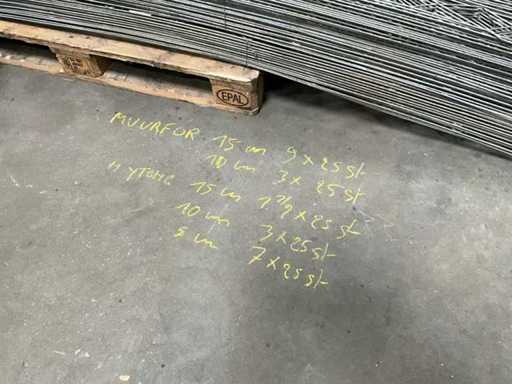 EPAL
MUURFOR 15 cm 9 x 25 st
10 cm 3 x 25 st
15 cm x 25 st
10 cm 3 x 25 st
5 cm 7 x 25 st